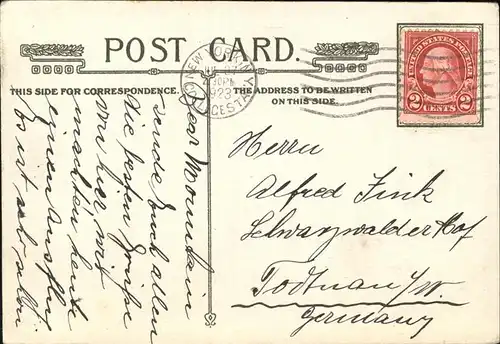 POST CARD.
THIS SIDE FOR CORRESPONDENCE.
THE ADDRESS TO BE WRITTEN
ON THIS SIDE.
NEW YORK, N.Y.
1923
UNITED STATES POSTAGE
2 CENTS 2
Bear Mountain
sende Euch allen
die besten Grüße
von hier wir
machten heute
einen Ausflug
Es ist sehr
Herrn
Alfred Fink
Schwarzwalder Hof
Todtnau i/W.
Germany